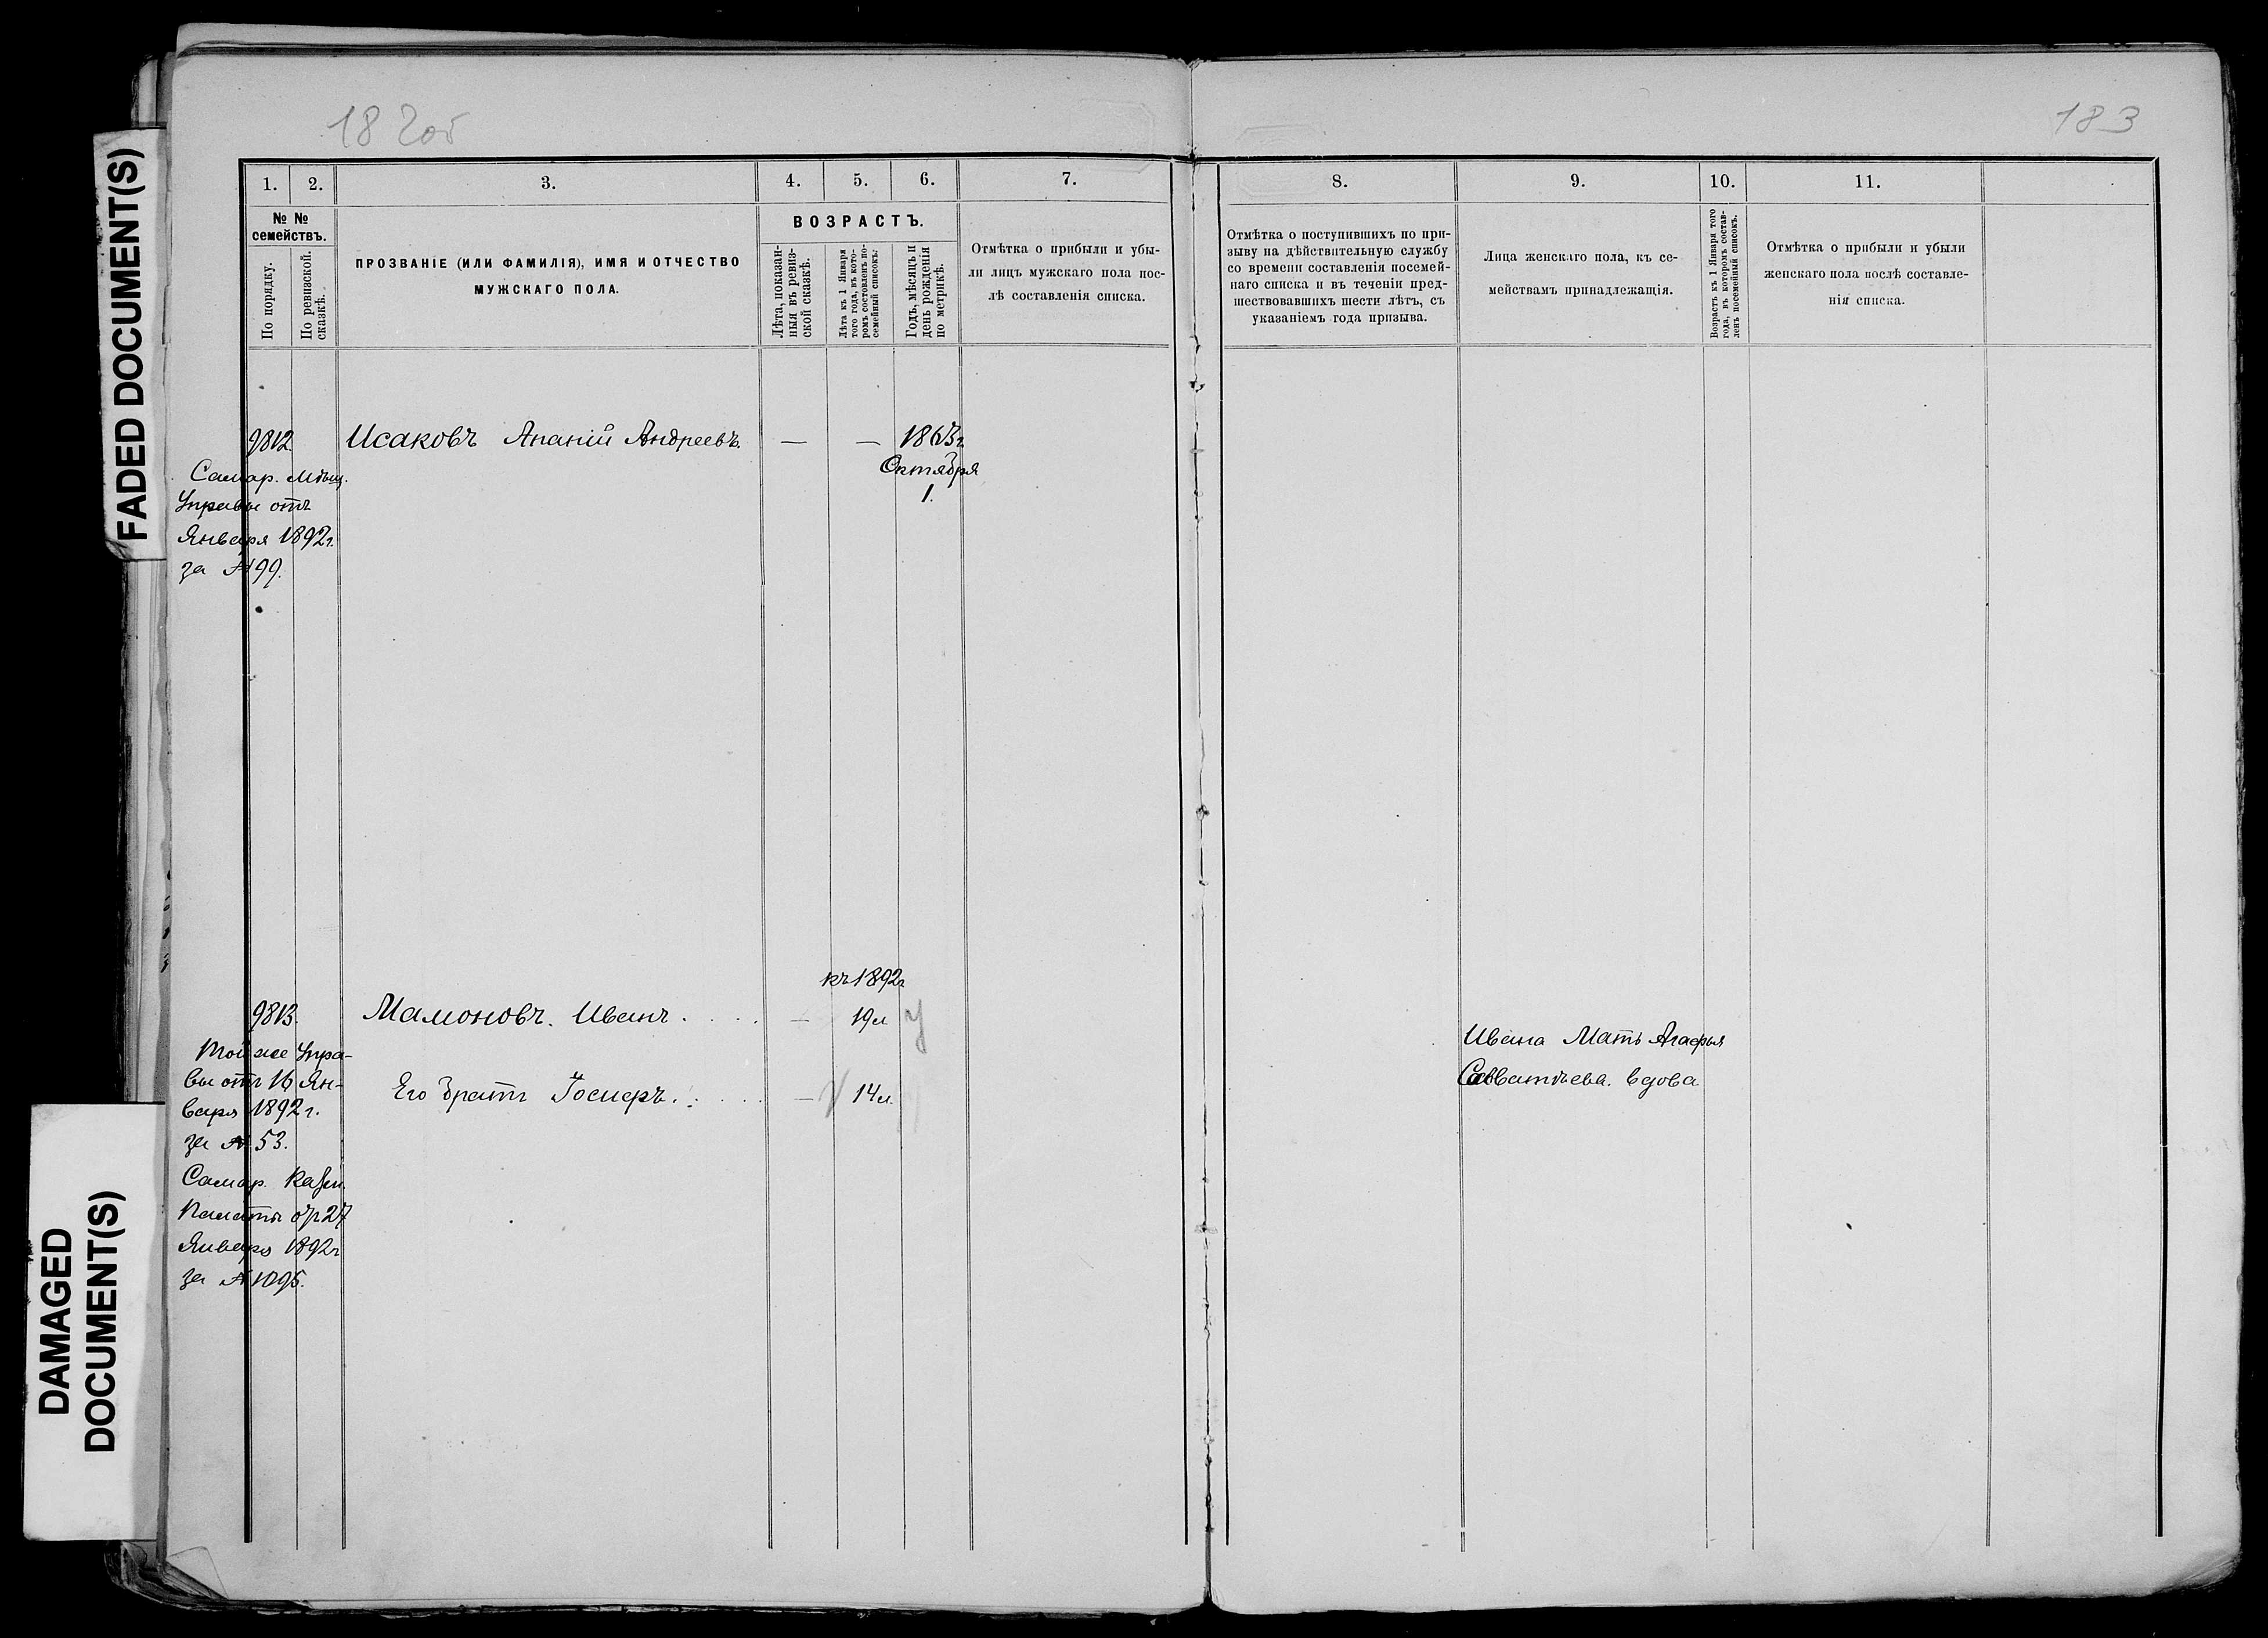 FADED DOCUMENT(S)
DAMAGED
DOCUMENT(S)
182об
183
1.
2.
3.
4.
5.
6.
7.
8.
9.
10.
11.
№ №
семействъ.
По порядку.
По ревизской
сказкѣ.
ПРОЗВАНІЕ (ИЛИ ФАМИЛІЯ), ИМЯ И ОТЧЕСТВО
МУЖСКАГО ПОЛА.
ВОЗРАСТЪ.
Лѣта, показан-
ныя въ ревиз-
ской сказкѣ.
Лѣта къ 1 Января
того года, въ кото-
ромъ составленъ по-
семейный списокъ.
Годъ, мѣсяцъ и
день рожденія
по метрикѣ.
Отмѣтка о прибыли и убы-
ли лицъ мужскаго пола пос-
лѣ составленія списка.
Отмѣтка о поступившихъ по при-
зыву на дѣйствительную службу
со времени составленія посемей-
наго списка и въ теченіи пред-
шествовавшихъ шести лѣтъ, съ
указаніемъ года призыва.
Лица женскаго пола, къ се-
мействамъ принадлежащія.
Возрастъ къ 1 Января того
года, въ которомъ состав-
ленъ посемейный списокъ.
Отмѣтка о прибыли и убыли
женскаго пола послѣ составле-
нія списка.
9812. Исаковъ Ананій Андреевъ. — — 1863г.
Октября
1.
Самар. Мѣщ.
Управы отъ
Января 1892г.
за №99.
къ 1892г
9813. Мамоновъ. Иванъ . . . . — 19л
Той же Упра-
вы отъ 16 Ян-
варя 1892г.
за № 53.
Самар. Казен.
Палаты от 27
Января 1892г
за № 1095.
Его братъ . . . . — 14л.
Ивана Мать Агафья
Савватѣева. вдова